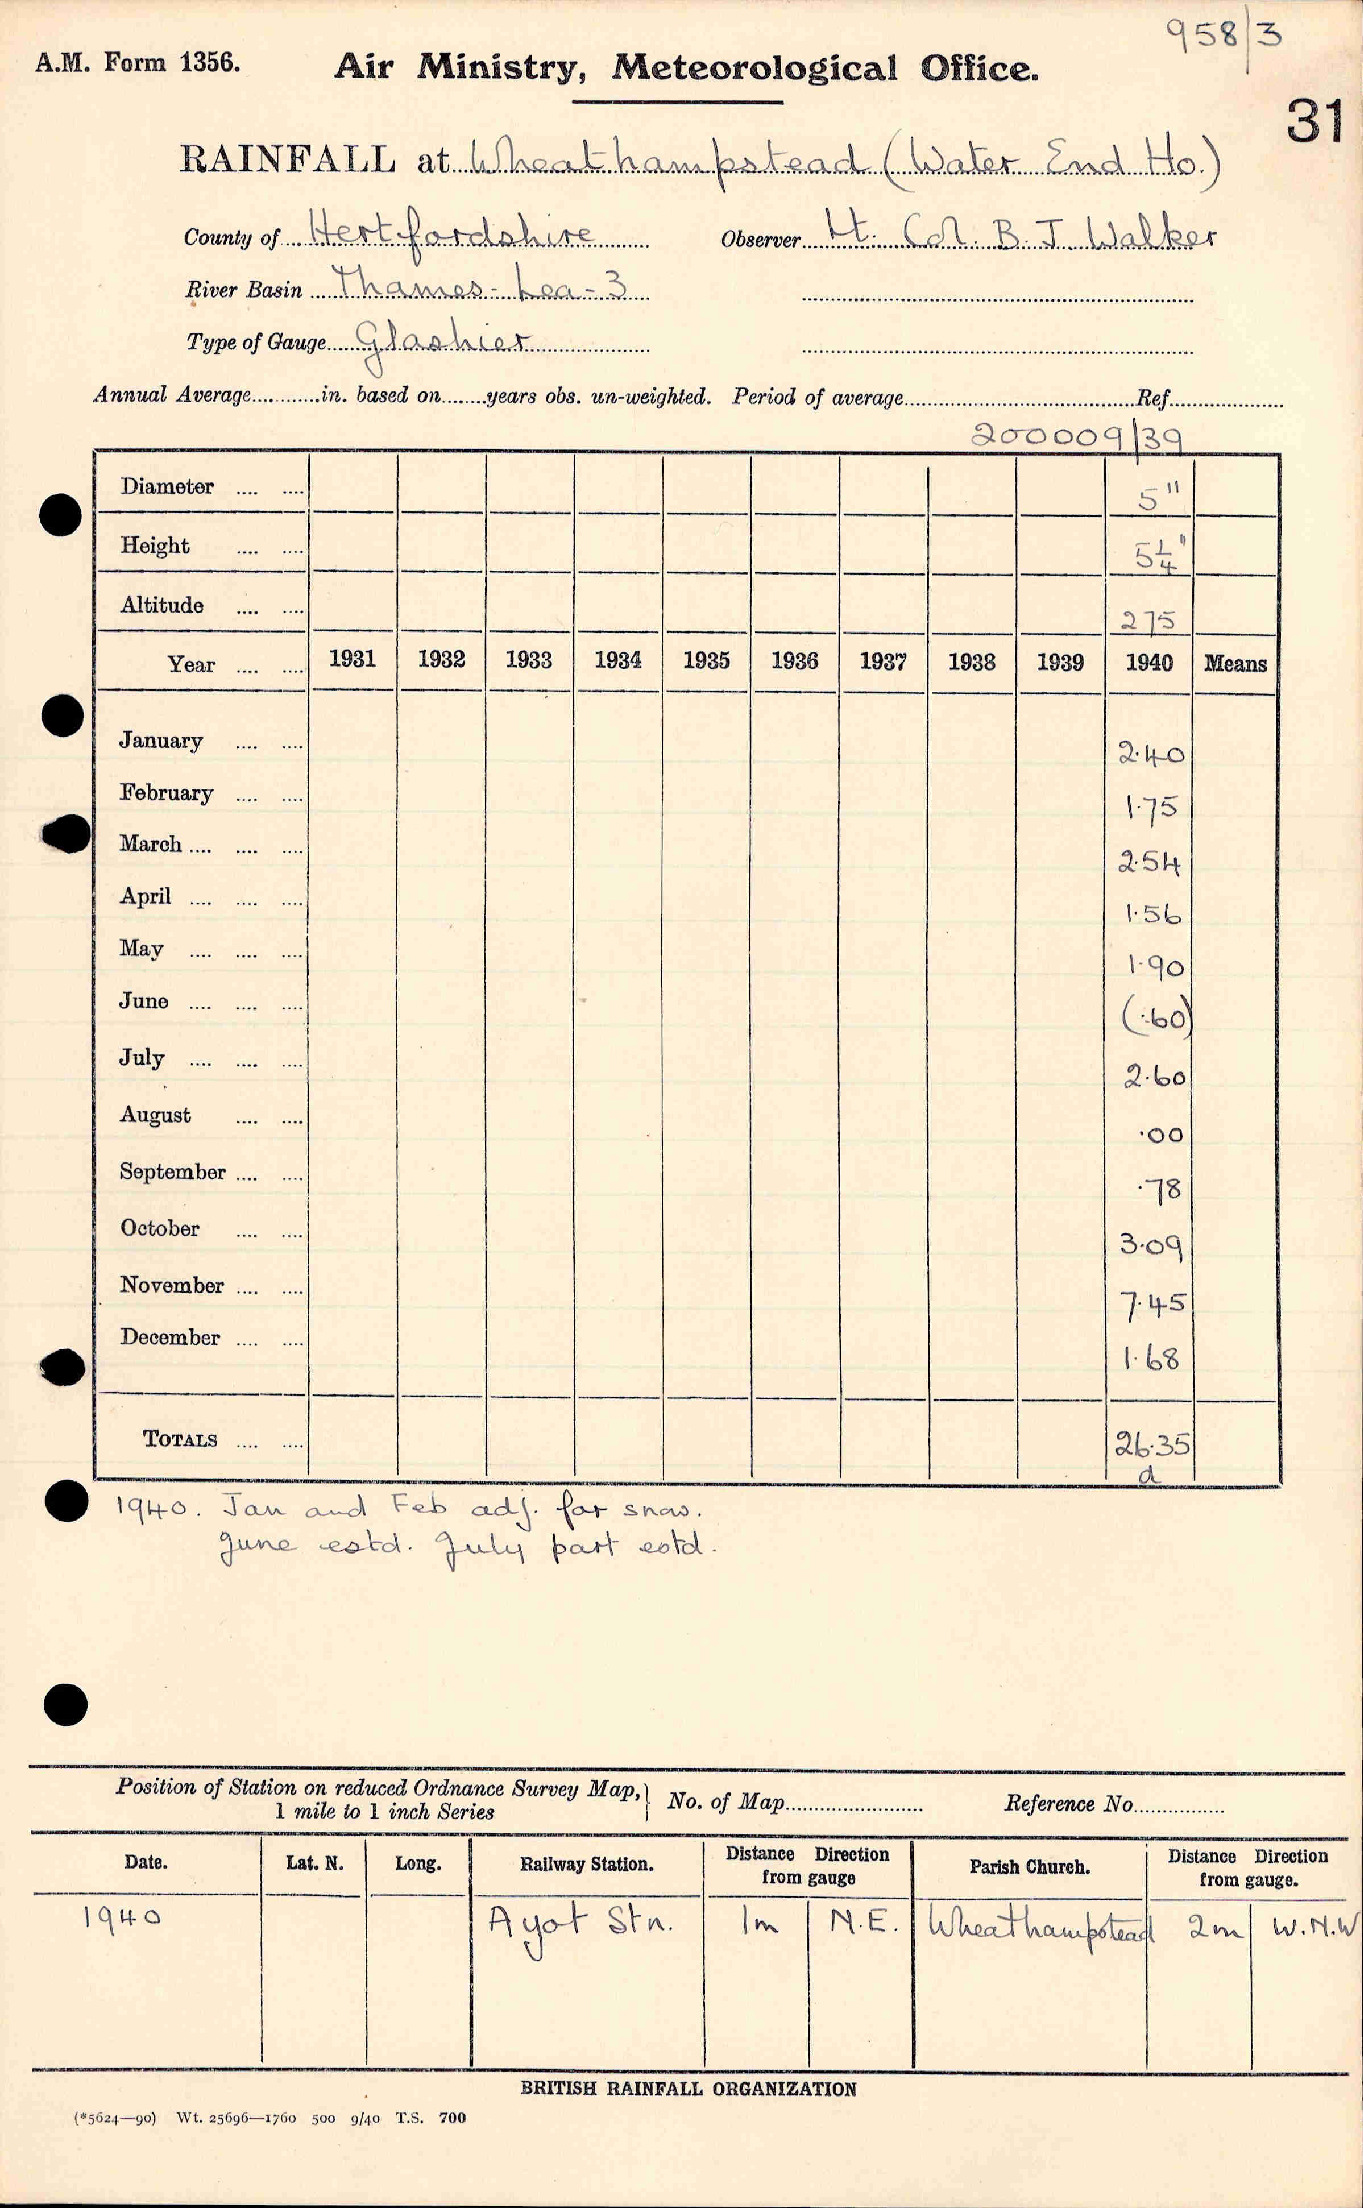 958/3
A.M. Form 1356. Air Ministry, Meteorological Office.
31
RAINFALL at Wheathampstead (Water End Ho.)
County of Hertfordshire Observer Lt. Col. B. J. Walker
River Basin Thames - Lea - 3
Type of Gauge Glashier
Annual Average............in. based on........years obs. un-weighted. Period of average..........Ref..........
200009/39
Diameter .... .... 5"
Height .... .... 5¼"
Altitude .... .... 275
Year .... .... 1931 1932 1933 1934 1935 1936 1937 1938 1939 1940 Means
January .... .... 2.40
February .... .... 1.75
March .... .... .... 2.54
April .... .... .... 1.56
May .... .... .... 1.90
June .... .... .... (.60)
July .... .... .... 2.60
August .... .... .00
September .... .... .78
October .... .... 3.09
November .... .... 7.45
December .... .... 1.68
TOTALS .... .... 26.35
d
1940. Jan and Feb adj. for snow.
June estd. July part estd.
Position of Station on reduced Ordnance Survey Map, } No. of Map.......... Reference No..........
1 mile to 1 inch Series
Date. Lat. N. Long. Railway Station. Distance Direction from gauge Parish Church. Distance Direction from gauge.
1940 Ayot Stn. 1m N.E. Wheathampstead 2m W.N.W
BRITISH RAINFALL ORGANIZATION
(*5624—90) Wt. 25696—1760 500 9/40 T.S. 700